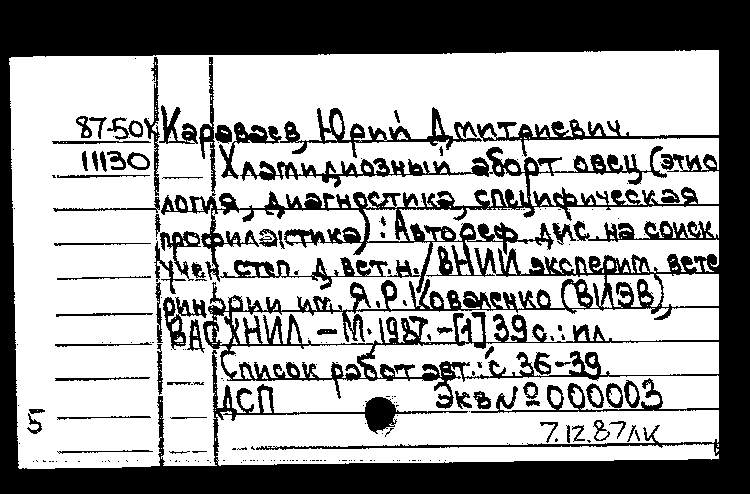 87-50К Караваев, Юрий Дмитриевич.
11130 Хламидиозный аборт овец (этио
логия, диагностика, специфическая
профилактика) : Автореф. дис. на соиск.
учен. степ. д. вет. н. / ВНИИ эксперим. вете
ринарии им. Я.Р. Коваленко (ВИЭВ),
ВАСХНИЛ. – М., 1987. – [1] 39 с. : ил.
Список работ авт.: с. 36-39.
ДСП Экз № 000003
5
7.12.87 ЛК